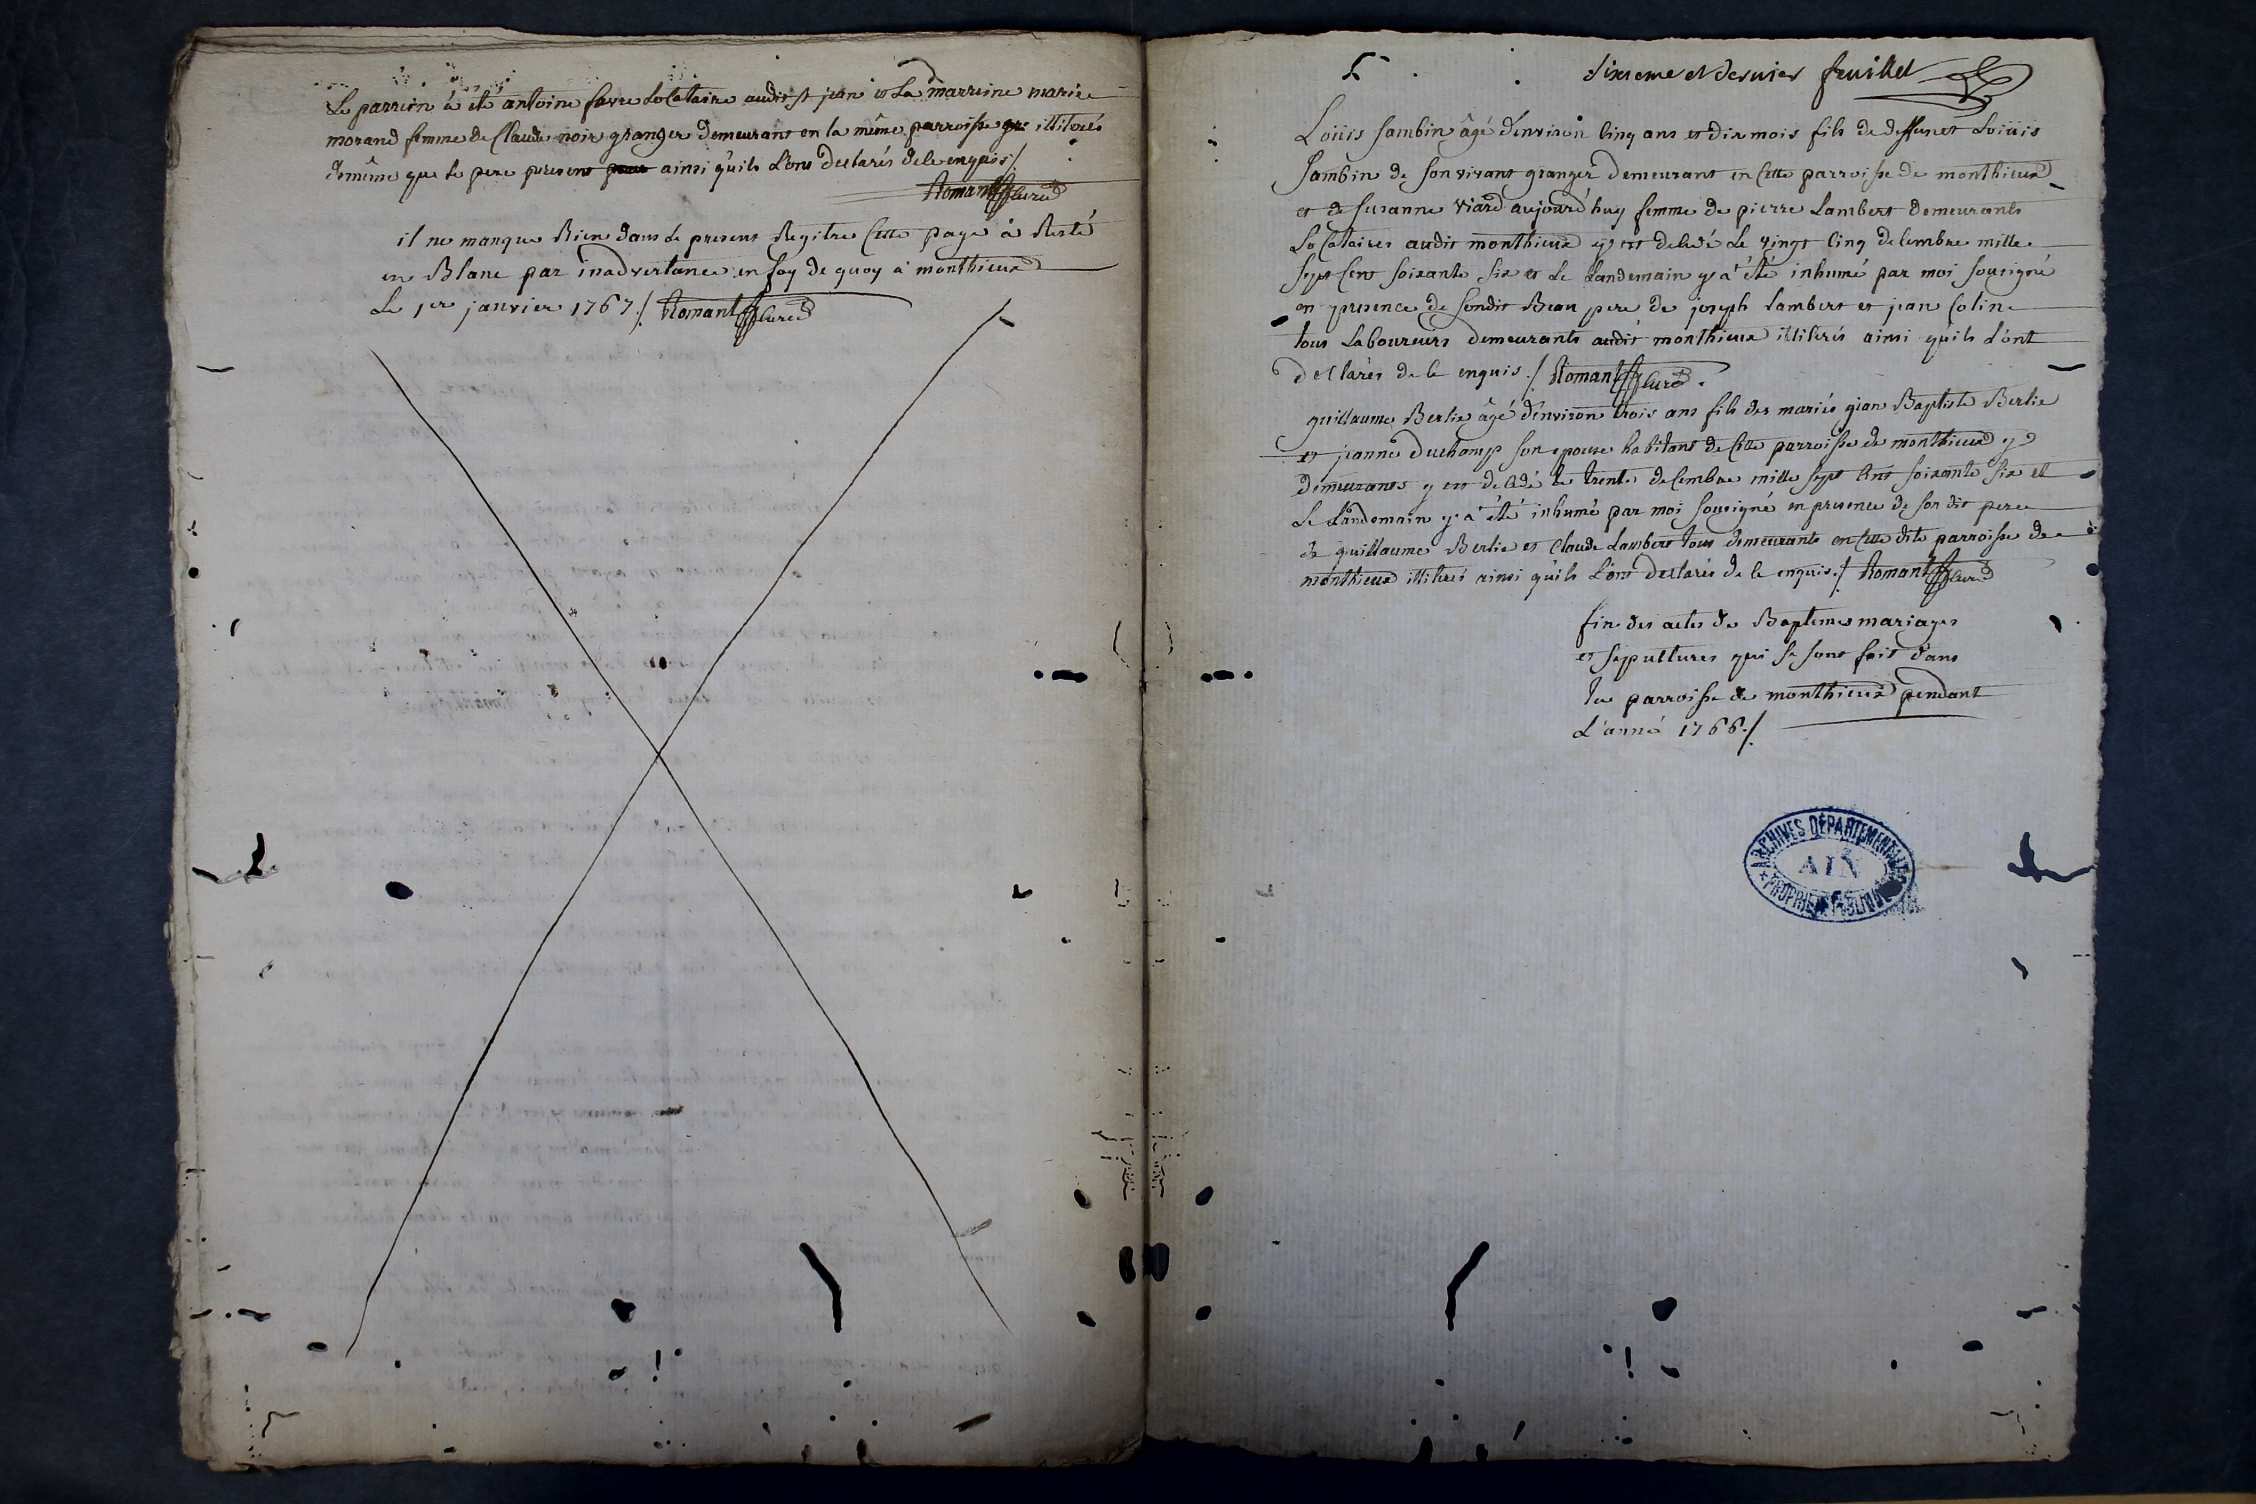 Le parrein à été antoine favre Locataire audit st jean et La marreine marie
morand femme de Claude noir granger demeurant en la même parroisse illiterés
demême que le pere present ainsi qu'ils L'ont declarés de ce enquis /
Romant Curé
il ne manque Rien dans le present Regitre Cette page à Resté
en Blanc par inadvertance en foy de quoy à monthieux
Le 1er janvier 1767 ./ Romant Curé
sixieme et dernier feuillet
Loüis sambin âgé d'environ Cinq ans et dix mois fils de deffunct Loiiis
Sambin de son vivant granger demeurant en Cette parroisse de monthieux
et de susanne Viard aujourd'huy femme de pierre Lambert demeurants
LoCataires audit monthieux y est decedé Le vingt Cinq decembre mille
sept Cent soixante six et Le Landemain y à été inhumé par moi sousigné
en presence de sondit Beau pere de joseph Lambert et jean Colin
tous Laboureurs demeurants audit monthieux illiterés ainsi qu'ils L'ont
declarés de ce enquis ./ Romant Curé.
guillaume Berlie âgé d'environ trois ans fils des mariés jean Baptiste Berlie
et jeanne duchamp son epouse habitans de Cette parroisse de monthieux y
demeurants y est decedé le trente decembre mille sept Cent soixante six et
Le Landemain y à été inhumé par moi sousigné en presence de son dit pere
de guillaume Berlie et Claude Lambert tous demeurants en Cette dite parroisse de
monthieux illiterés ainsi qu'ils L'ont declarés de ce enquis ./ Romant Curé
fin des actes de Baptemes mariages
et sepultures qui se sont fait dans
La parroisse de monthieux pendant
L'anné 1766 ./
ARCHIVES DÉPARTEMENTALES
AIN
PROPRIÉTÉ PUBLIQUE